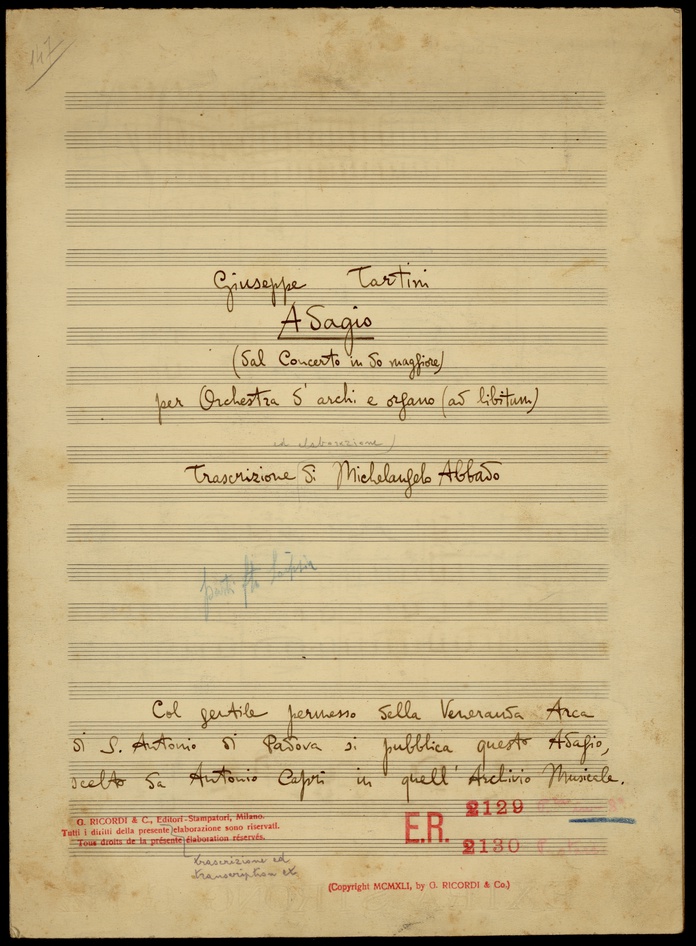 147
Giuseppe Tartini
Adagio
(dal Concerto in do maggiore)
per Orchestra d'archi e organo (ad libitum)
ed elaborazione)
Trascrizione di Michelangelo Abbado
parti
Col gentile permesso della Veneranda Arca
di S. Antonio di Padova si pubblica questo Adagio,
scelto da Antonio Capri in quell'Archivio Musicale.
G. RICORDI & C., Editori-Stampatori, Milano.
Tutti i diritti della presente elaborazione sono riservati.
Tous droits de la présente élaboration réservés.
trascrizione ed
transcription et
E.R.
2129
2130
(Copyright MCMXLI, by G. RICORDI & Co.)